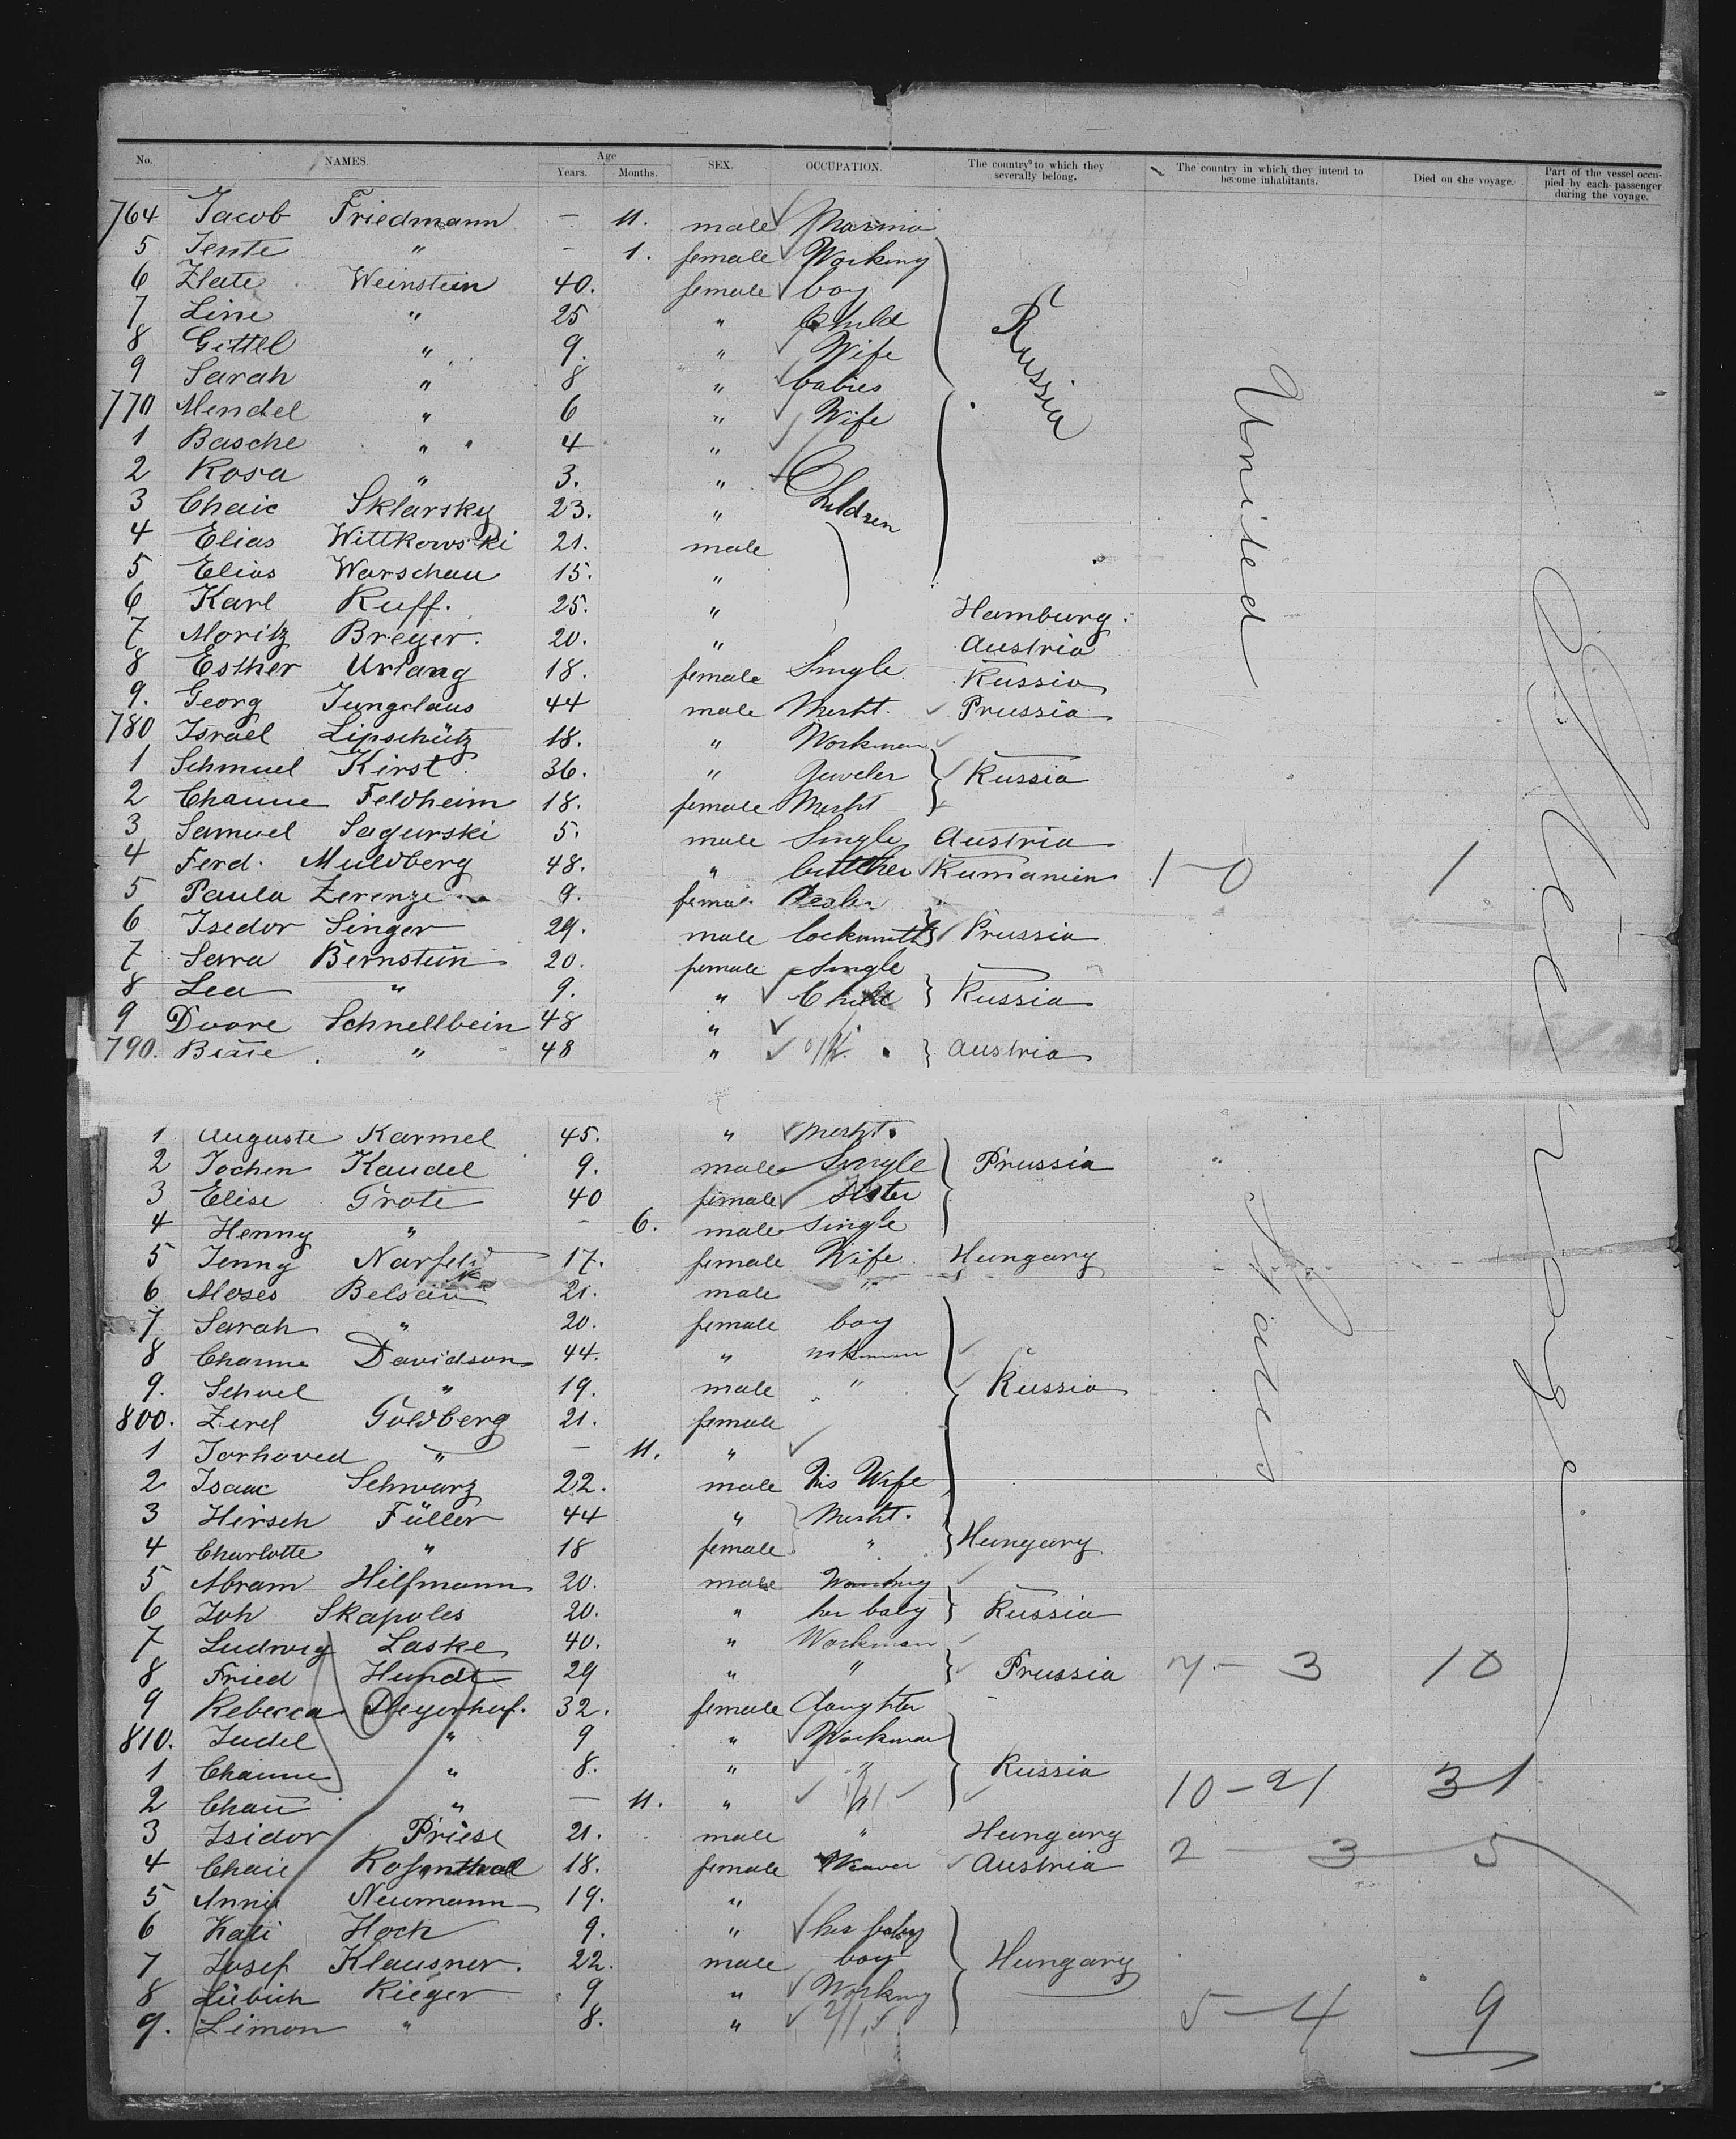 No. NAMES. Age Years. Months. SEX. OCCUPATION. The country to which they severally belong. The country in which they intend to become inhabitants. Died on the voyage. Part of the vessel occupied by each passenger during the voyage.
764 Jacob Friedmann — 11. male
5 Jente " — 1. female Working
6 Zlate Weinstein 40. female boy
7 Line " 25 " Child
8 Gittel " 9. " Wife
9 Sarah " 8 " babies Russia
770 Mendel " 6 " Wife
1 Basche " 4 "
2 Rosa " 3. "
3 Chaie Sklarsky 23. " Children
4 Elias Wittkowski 21. male
5 Elias Warschau 15. "
6 Karl Ruff. 25. " Hamburg. United
7 Moritz Breyer. 20. " Austria
8 Esther Urlang 18. female Single Russia
9. Georg Jungclaus 44 male Mercht. Prussia
780 Israel Lipschütz 18. " Workman
1 Schmuel Kirst 36. " Jeweler Russia
2 Channe Feldheim 18. female Mercht
3 Samuel Sagurski 5. male Single Austria
4 Ferd. Muldberg 48. " butcher Rumanien 1-0 1
5 Paula Zerenze 9. femal.
6 Isedor Singer 29. male locksmith Prussia
7 Sara Bernstein 20. female Single
8 Lea " 9. " Child Russia
9 Dvore Schnellbein 48 "
790. " 48 " Austria
1 Auguste Karmel 45. " Mercht.
2 Jochen Kaudel 9. male Single Prussia "
3 Elise Grote 40 female Sister
4 Henny " — 6. male Single
5 Jenny 17. female Wife Hungary
6 Moses 21. male "
7 Sarah " 20. female boy States
8 Channe Davidson 44. "
9. Schuel " 19. male " Russia
800. Zirel Goldberg 21. female
1 Jorhoved " — 11. "
2 Isaac Schwarz 22. male his Wife
3 Hirsch Füller 44 " Mercht.
4 Charlotte " 18 female " Hungary
5 Abram Hilfmann 20. male
6 Joh Skapoles 20. " her baby Russia
7 Ludwig Laske 40. " Workman
8 Fried Hundt 29 " " Prussia 7-3 10
9 Rebecca Meyerhof. 32. female daughter
810. Judel " 9 " Workman
1 Channe " 8. " " Russia
2 " — 11. " 10-21 31
3 Isidor Priese 21. male " Hungary
4 Chaie Rosenthal 18. female Weaver Austria 2-3 5
5 Anna Neumann 19. "
6 Kati Hoch 9. " her baby
7 Josef Klausner. 22. male boy Hungary
8 Rieger 9 " Working
9. Simon " 8. " 5-4 9